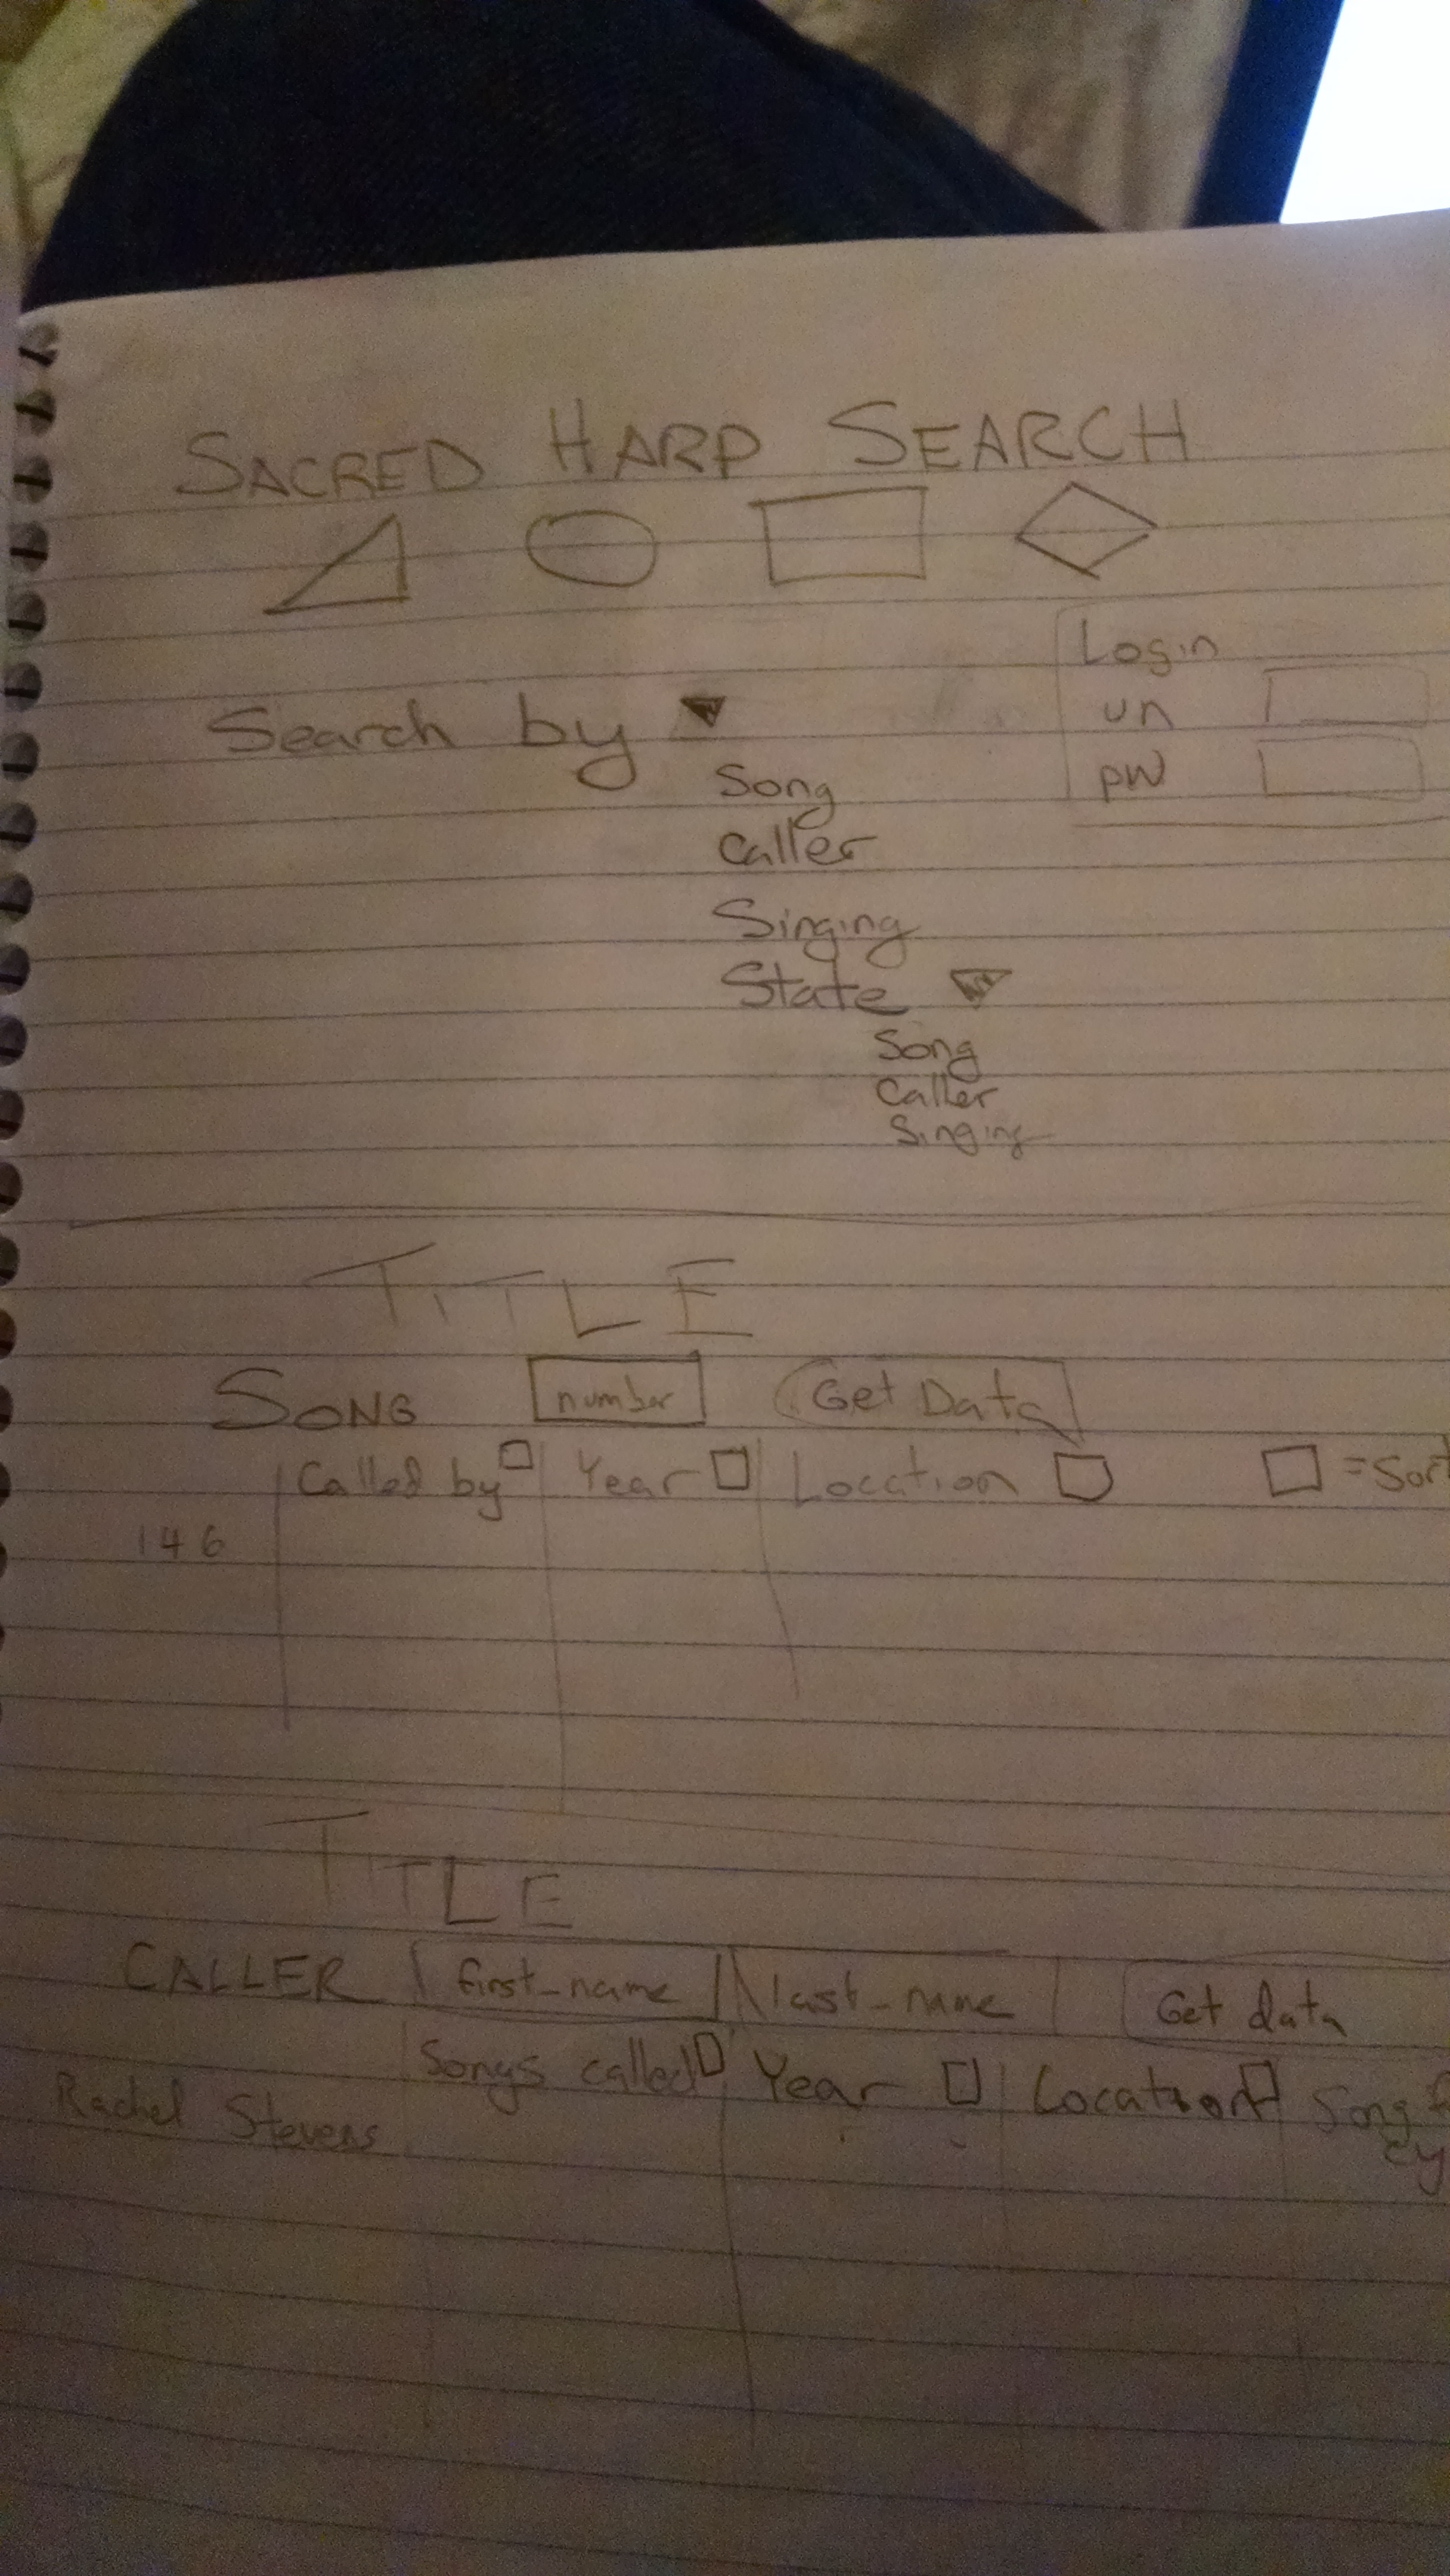 SACRED HARP SEARCH
Login
un
pw
Search by
Song
Caller
Singing
State
Song
Caller
Singing
TITLE
SONG number Get Data
Called by Year Location = Sort
146
TITLE
CALLER first_name last_name Get data
Songs called Year Location Song
Rachel Stevens